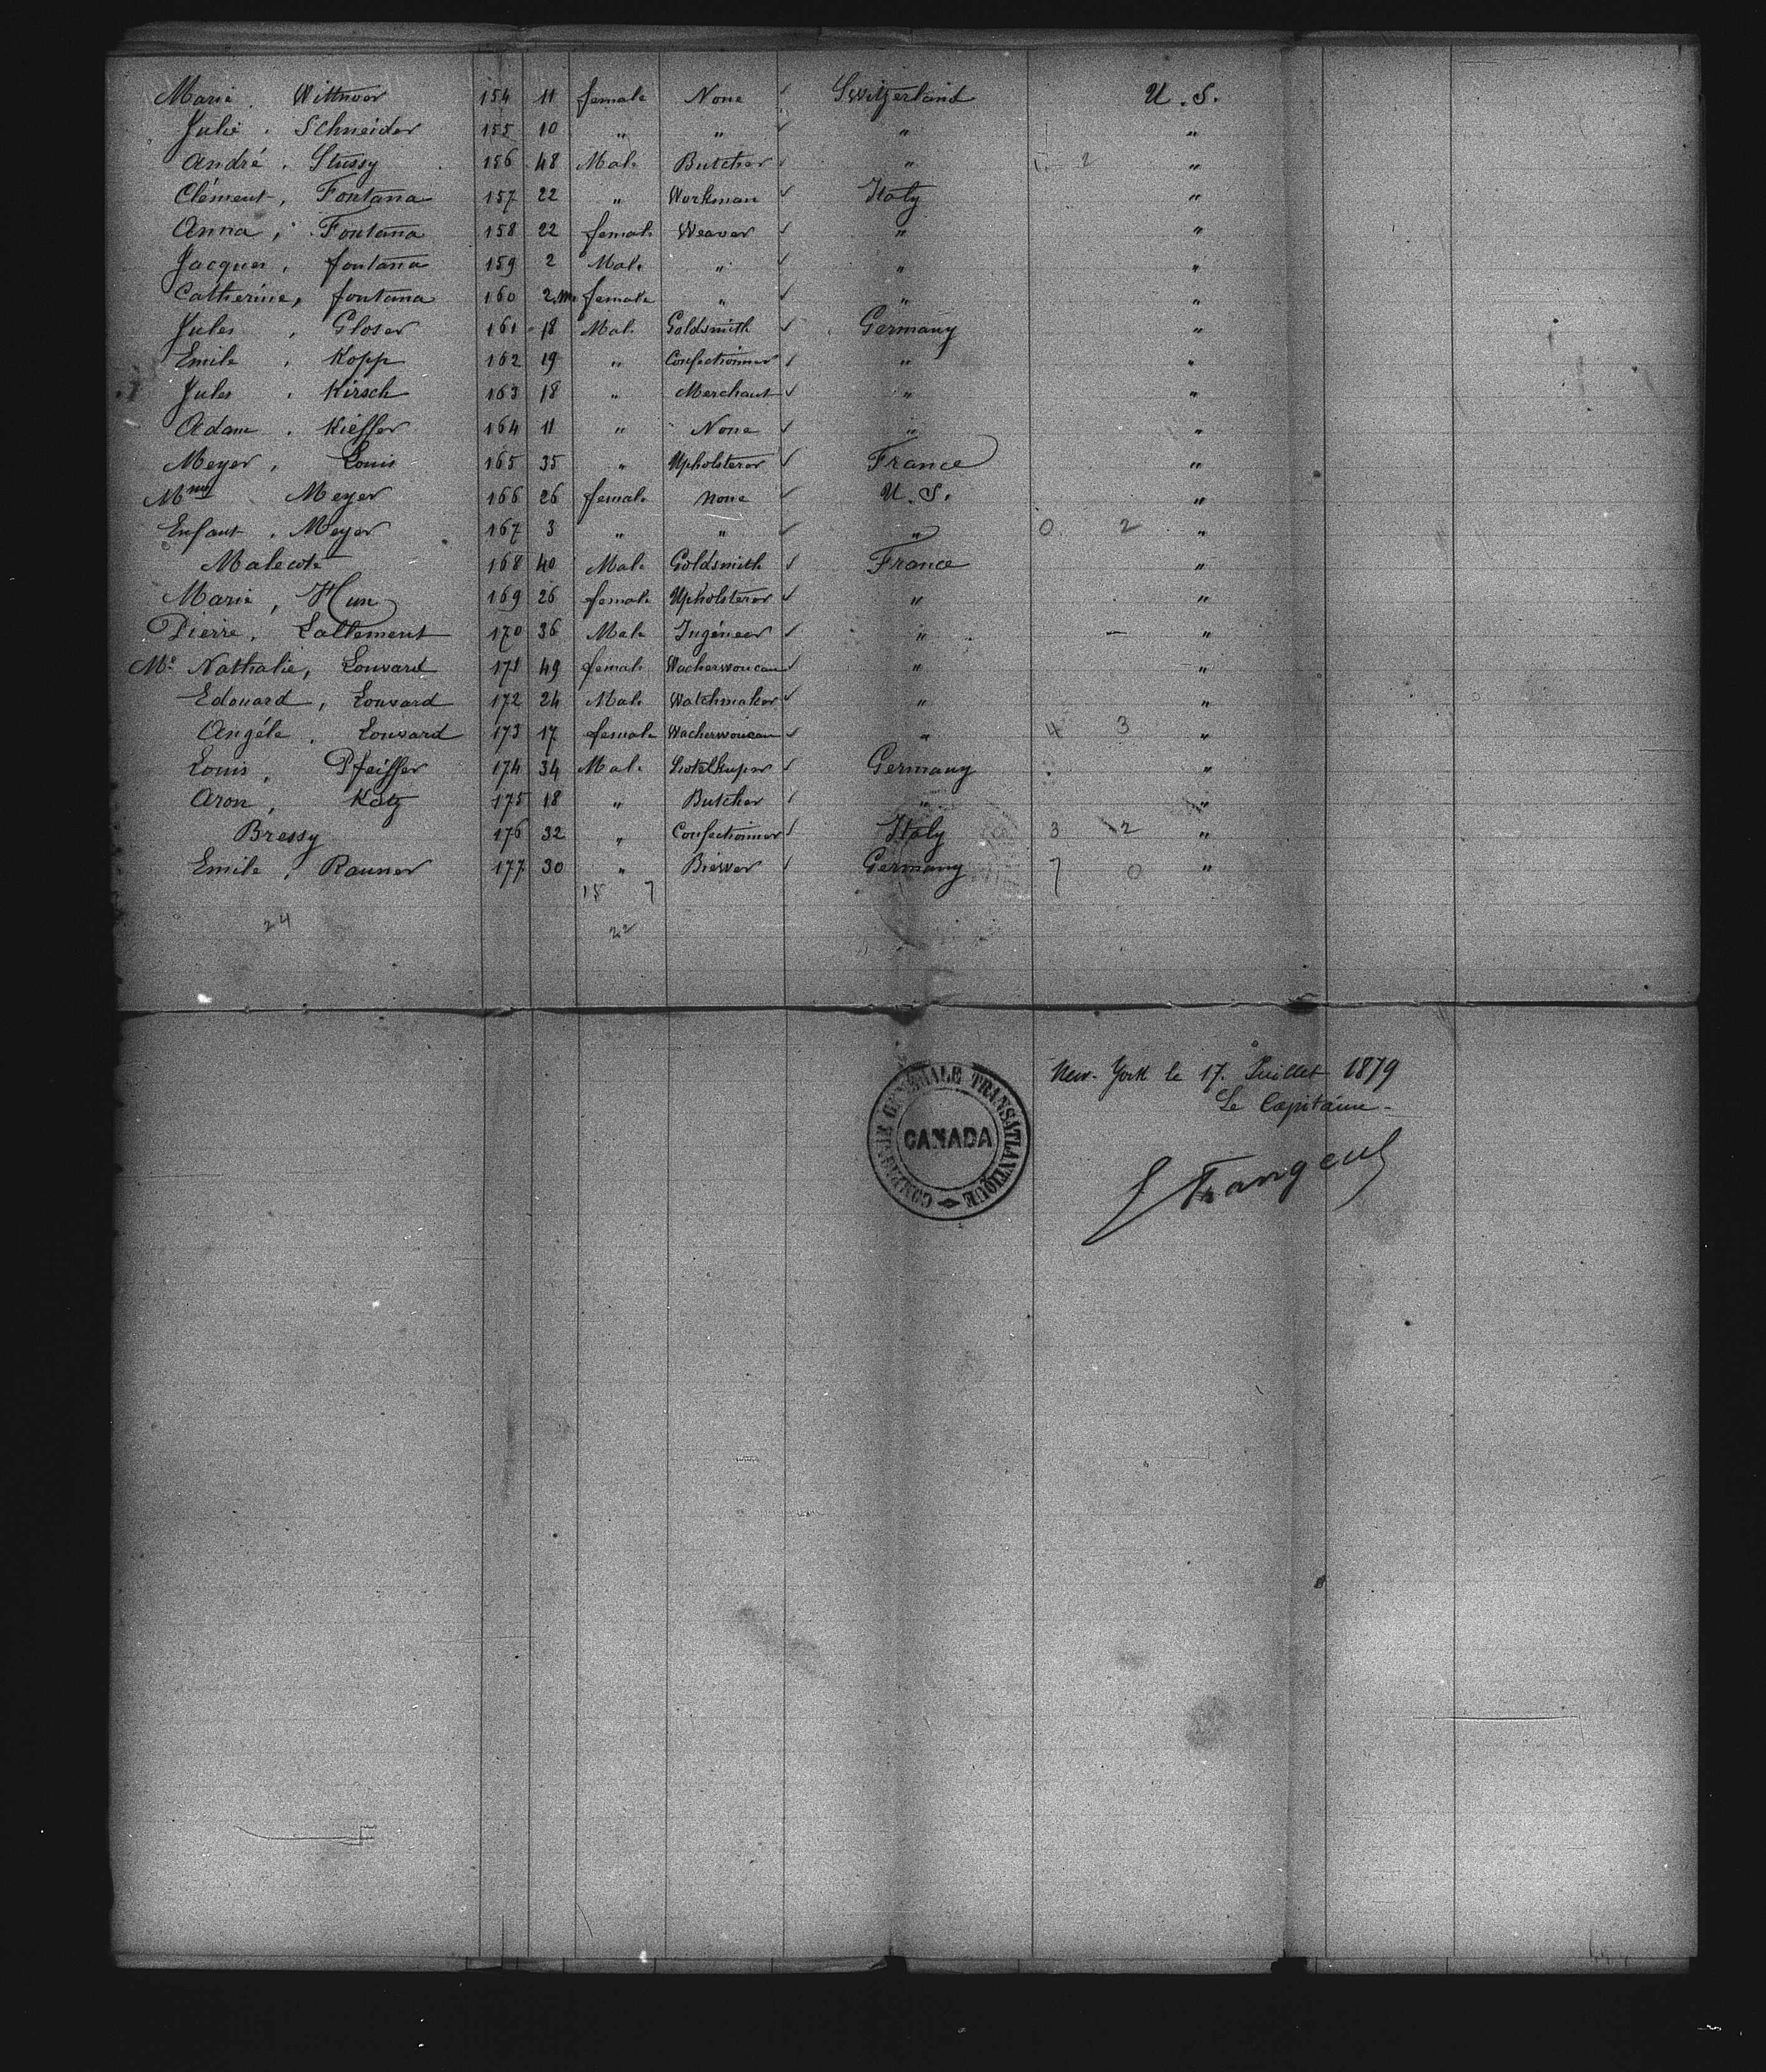 Marie . Wittwer 154 11 female None ✓ Switzerland U. S.
Julie . Schneider 155 10 " " ✓ " "
André . Stussy 156 48 Male Butcher ✓ " 2 "
Clément , Fontana 157 22 " Workman ✓ Italy "
Anna , Fontana 158 22 female Weaver ✓ " "
Jacques , fontana 159 2 Male " ✓ " "
Catherine , fontana 160 2 m female " ✓ " "
Jules , Gloser 161 18 Male Goldsmith ✓ Germany "
Emile . Kopp 162 19 " Confectioner ✓ " "
Jules . Kirsch 163 18 " Merchant ✓ " "
Adam . Kieffer 164 11 " None ✓ " "
Meyer , Louis 165 35 " Upholsterer ✓ France "
Mme Meyer 166 26 female none ✓ U. S. "
Enfant . Meyer 167 3 " " ✓ " 0 2 "
Malecot 168 40 Male Goldsmith ✓ France "
Marie , Hun 169 26 female Upholsterer ✓ " "
Pierre , Lallement 170 36 Male Ingéneer ✓ " – "
Me Nathalie , Louvard 171 49 female Wacherwoucan ✓ " "
Edouard , Louvard 172 24 Male Watchmaker ✓ " "
Angéle . Louvard 173 17 female Wacherwoucan ✓ " 4 3 "
Louis , Pfeiffer 174 34 Male hotelkeeper ✓ Germany "
Aron , Katz 175 18 " Butcher ✓ " "
Bressy 176 32 " Confectioner ✓ Italy 3 2 "
Emile , Rauner 177 30 " Biewer ✓ Germany 7 0 "
15 7
24 22
New-York le 17. Juillet 1879
Le Capitaine -
COMPAGNIE GÉNÉRALE TRANSATLANTIQUE
CANADA
Frangeul